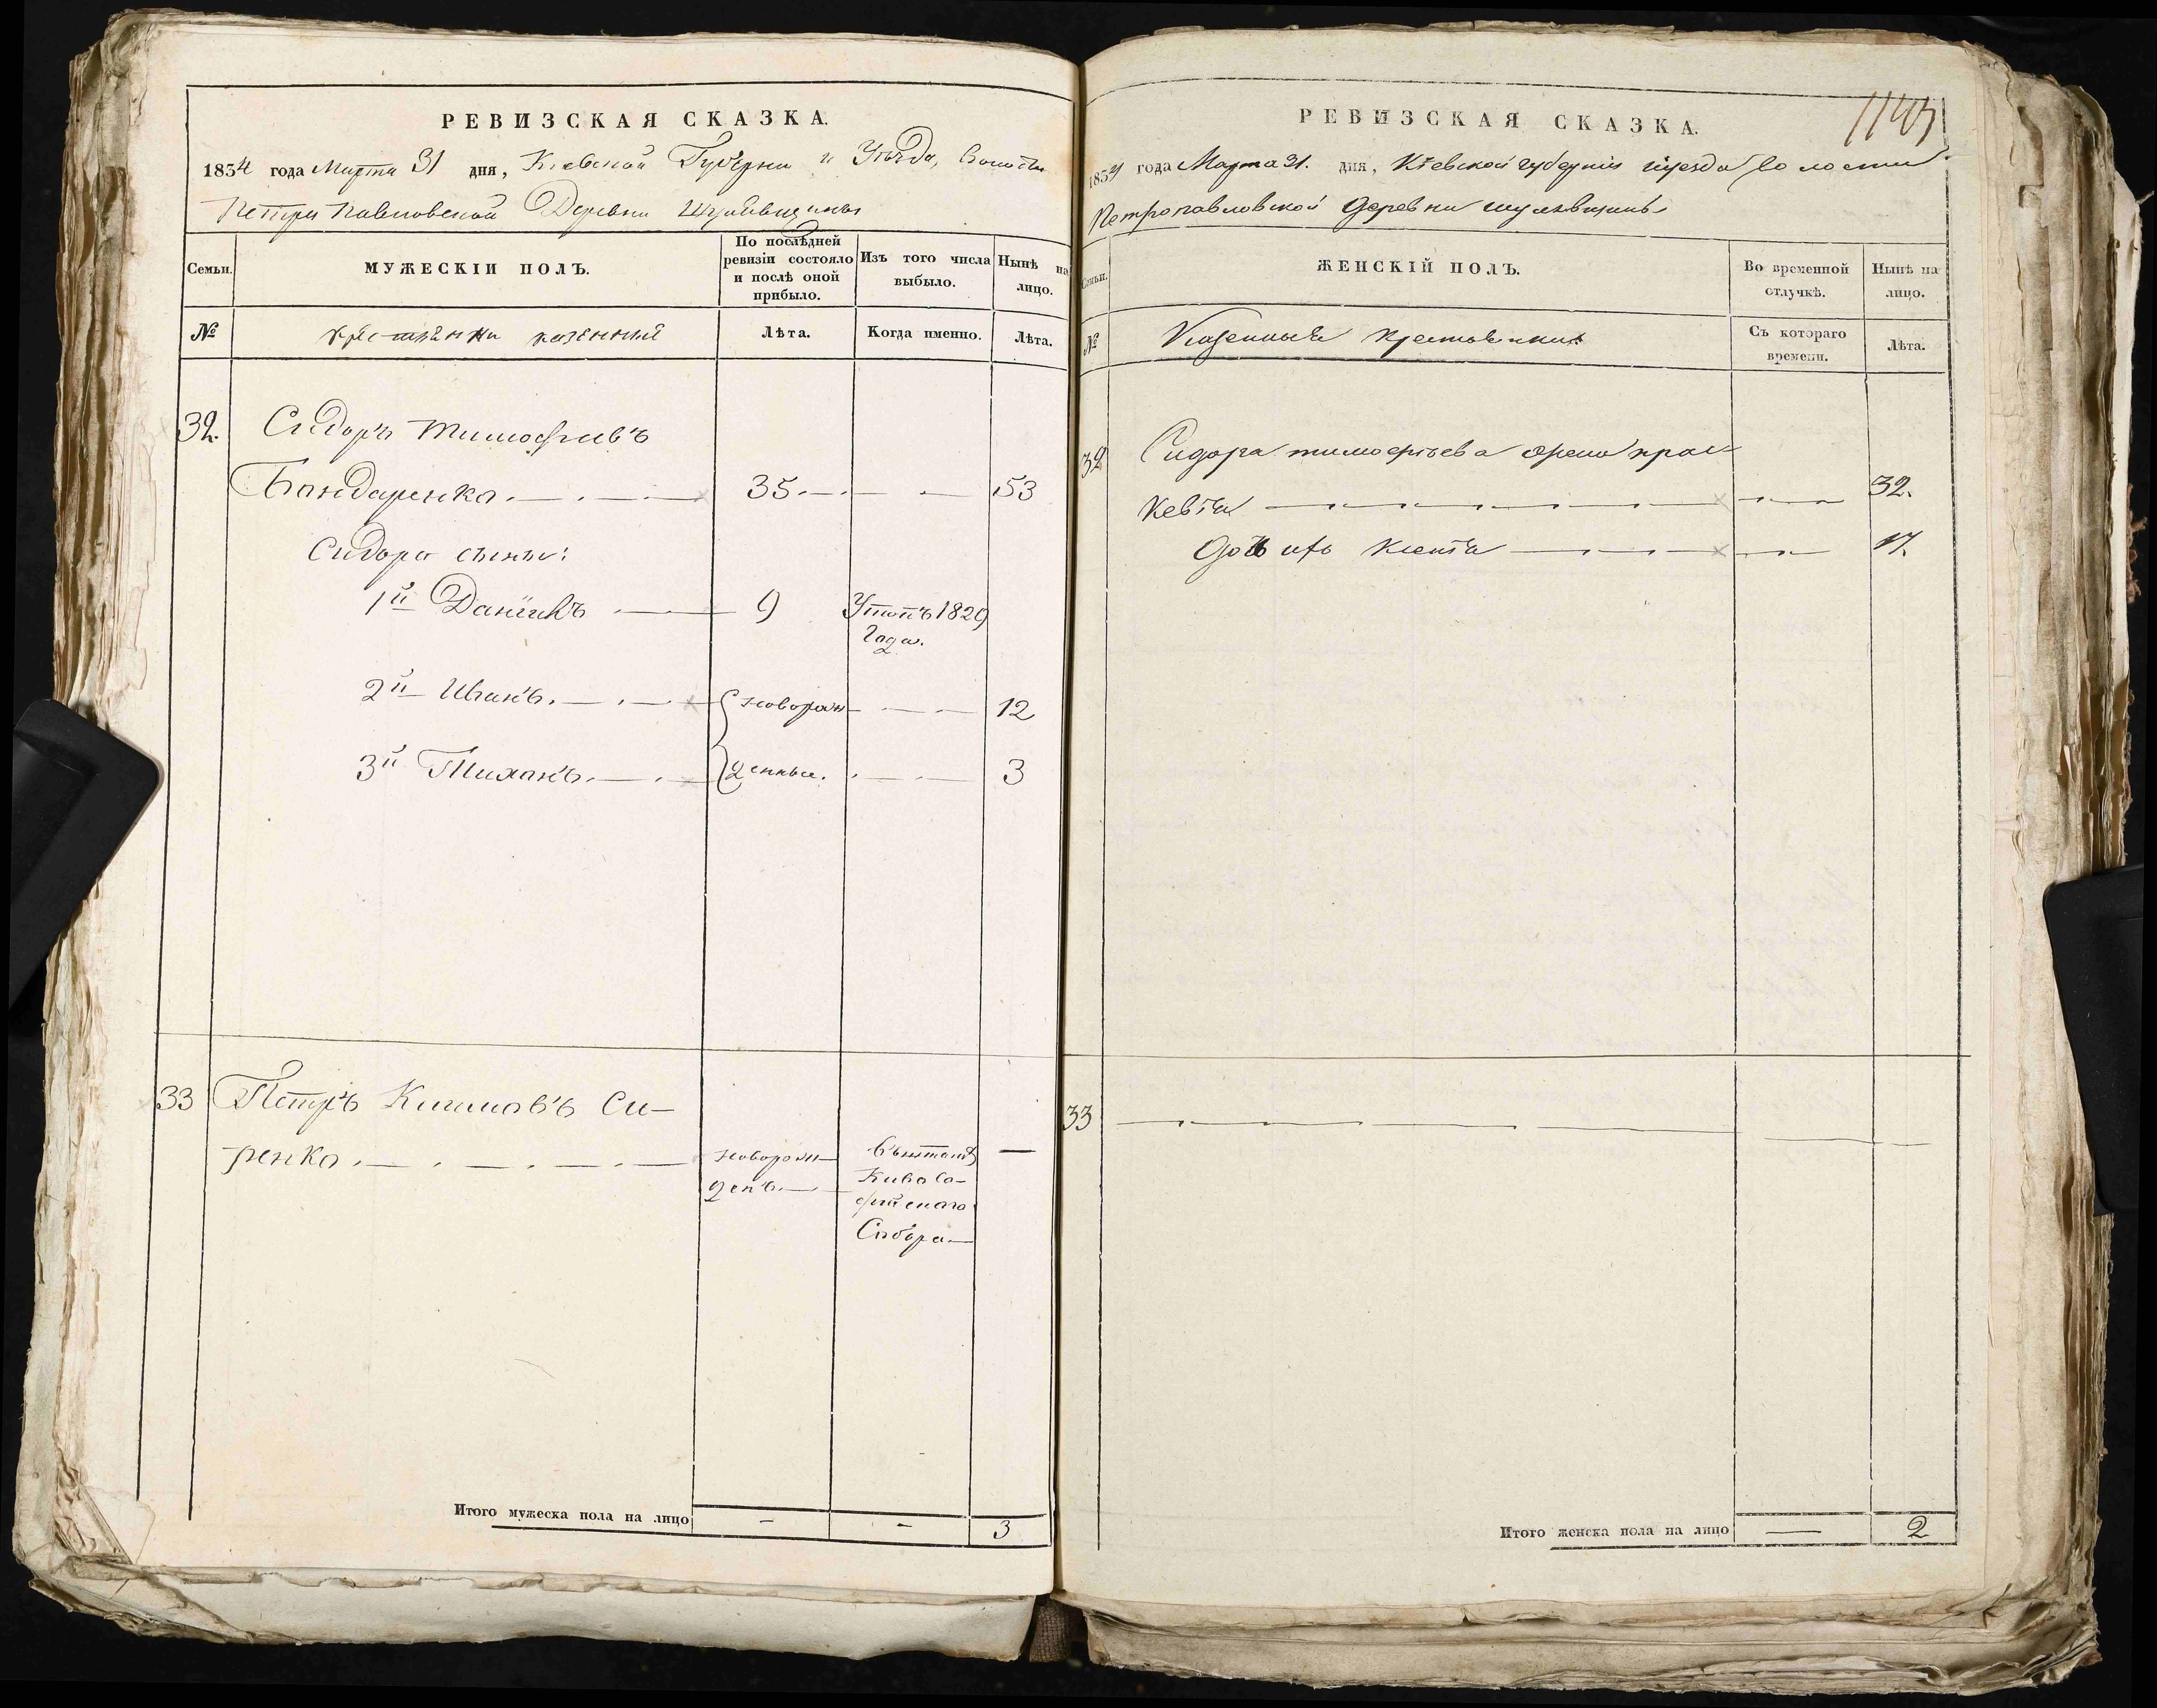 РЕВИЗСКАЯ СКАЗКА.
1834 года Марта 31 дня, Кіевской Губерніи и Уѣзда, Волости
Петро Павловской Деревни Шулявщины
Семьи.
МУЖЕСКІИ ПОЛЪ.
По послѣдней ревизіи состояло и послѣ оной прибыло.
Изъ того числа выбыло.
Нынѣ на лицо.
№
Лѣта.
Когда именно.
Лѣта.
32. Сидоръ Тимофѣевъ
Бондаренко. 35. 53
Сидора сыны:
1й Данiилъ 9 Утопъ 1829
Года.
2й Иванъ. новорож 12
3й Тихонъ. денныи. 3
33 Петръ Си-
ренко. новорож
денъ.
Собора
Итого мужеска пола на лицо - - 3
1145
РЕВИЗСКАЯ СКАЗКА.
1834 года Марта 31. дня, Кіевской губерніи иуезда волости
Петропавловской деревни шулявщины
Семьи.
ЖЕНСКІЙ ПОЛЪ.
Во временной отлучкѣ.
Нынѣ на лицо.
№
Казенныя крестьянки
Съ котораго времени.
Лѣта.
32 Сидора тимофѣева
32.
17.
33
Итого женска пола на лицо — 2